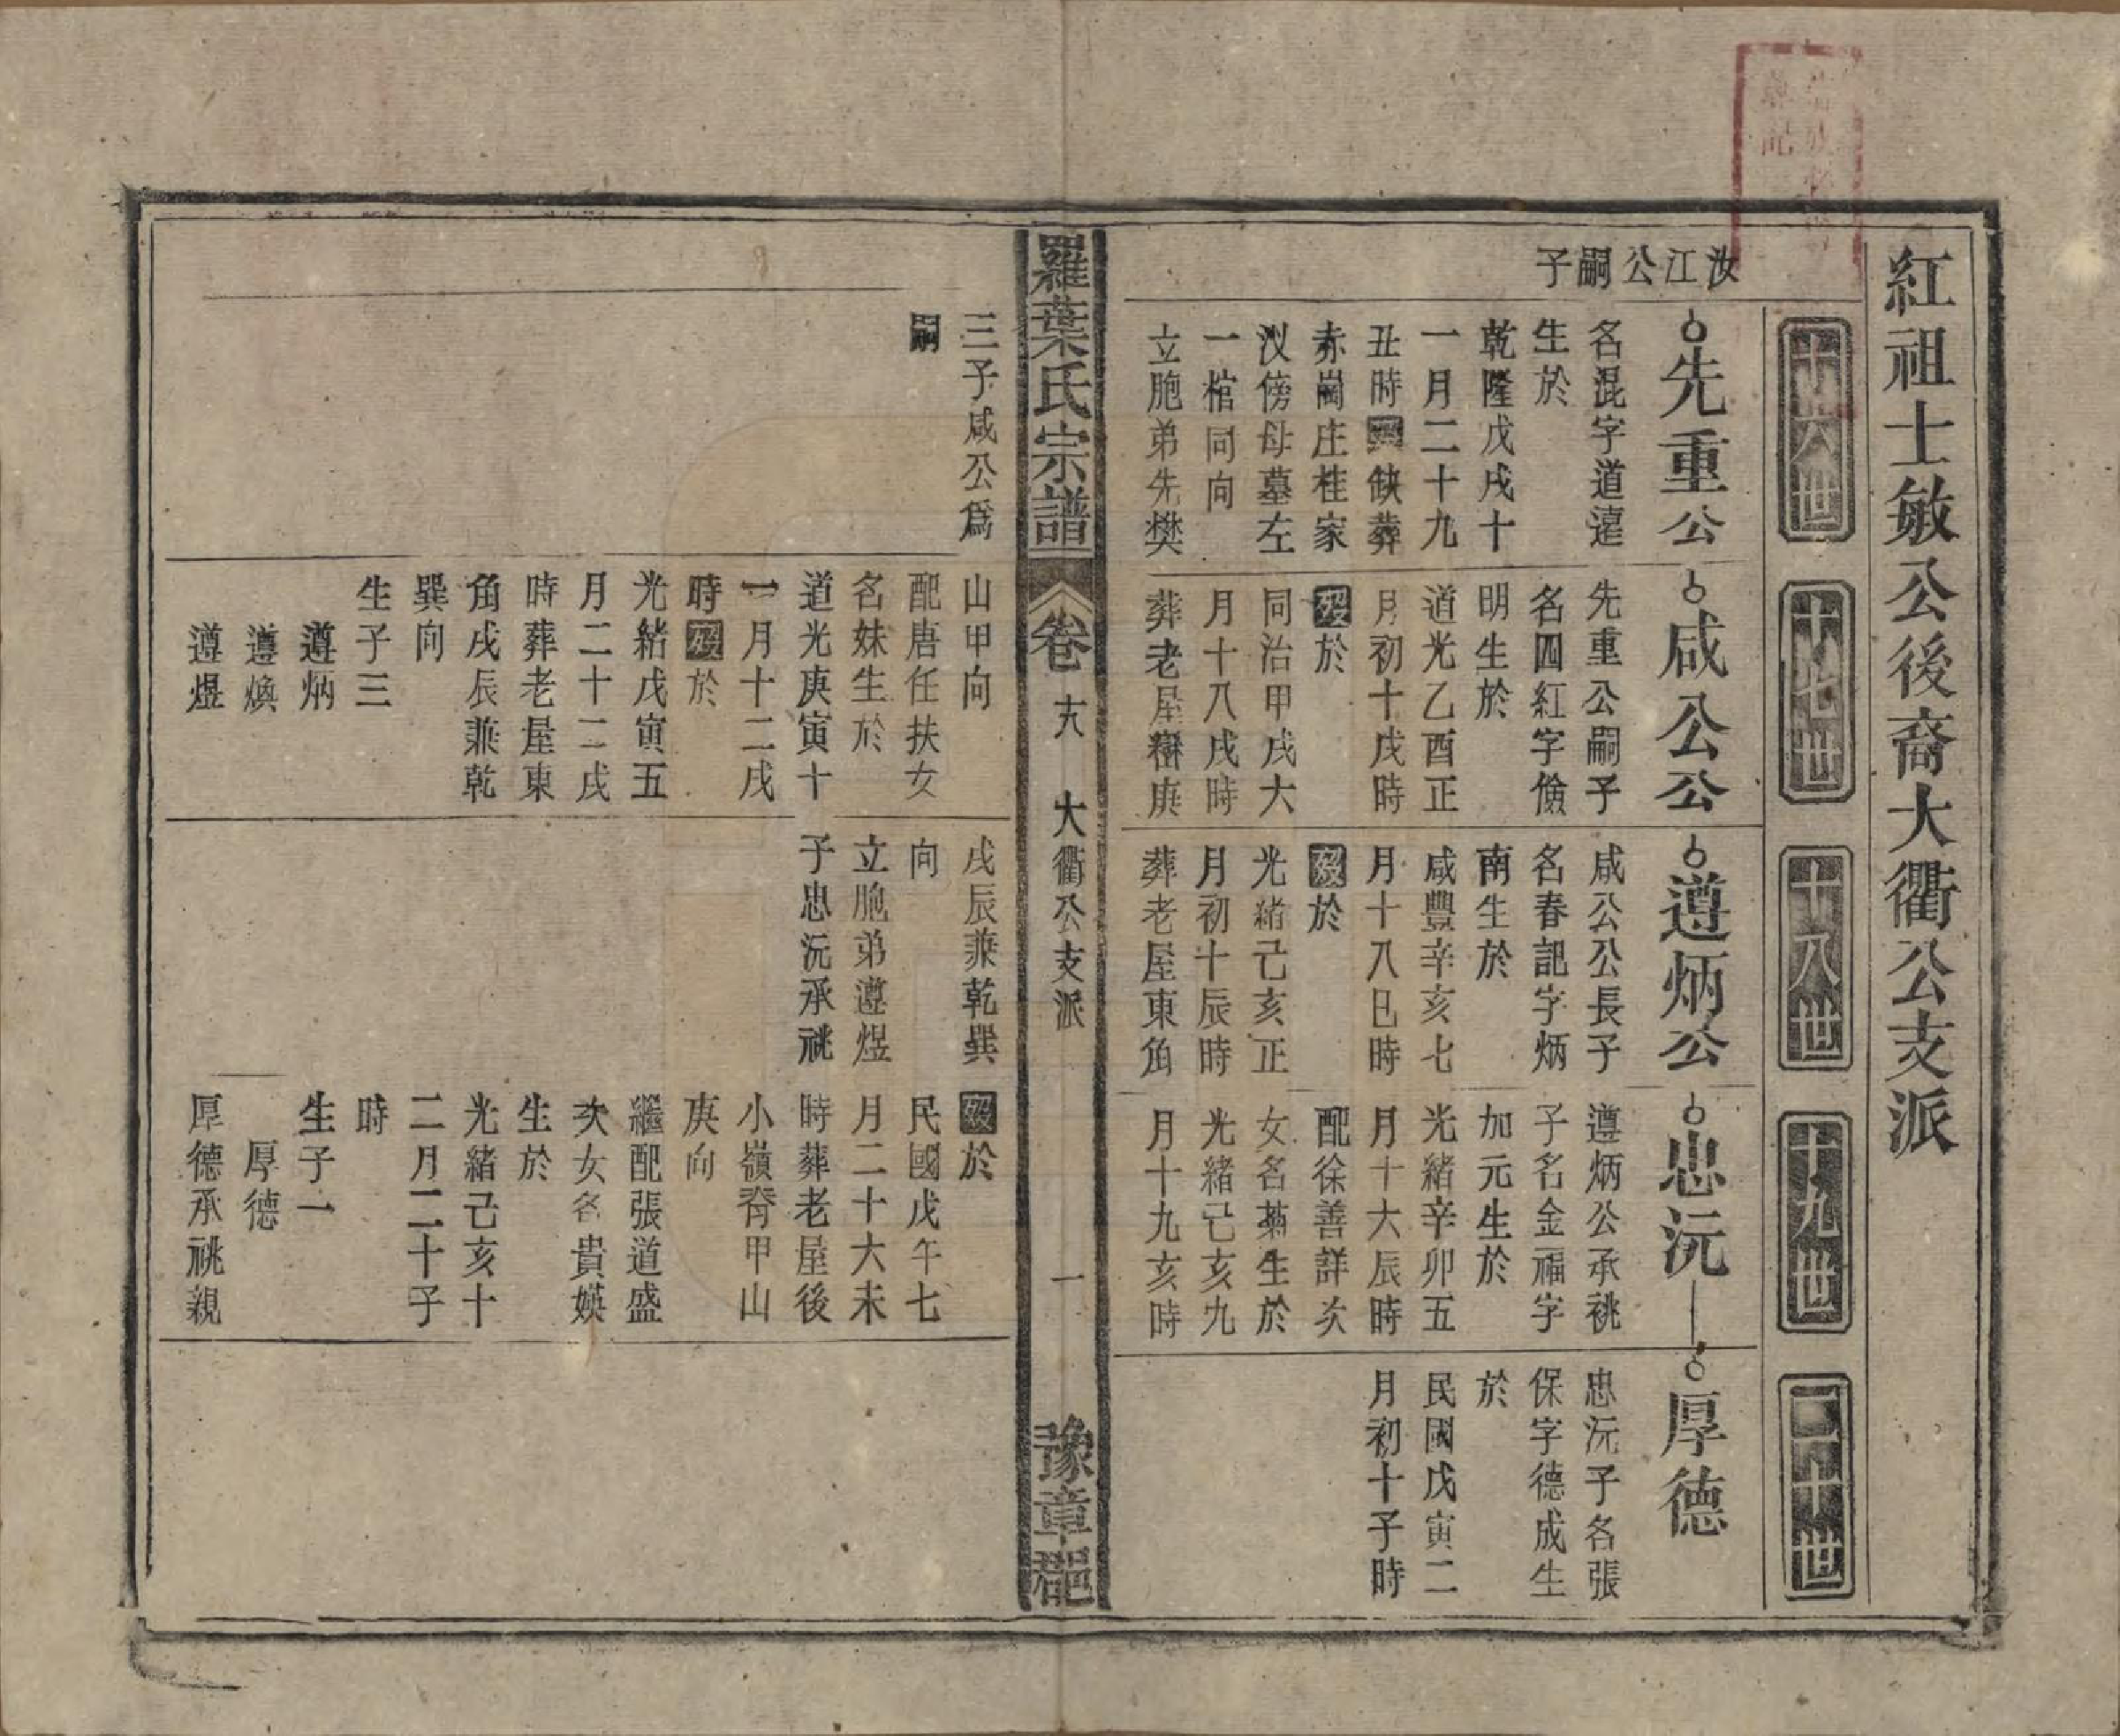 紅祖士敏公後裔大衢公支派
十六世
十七世
十八世
十九世
二十世
汝江公嗣子
先重公
名混字道
生於
乾隆戊戌十
一月二十九
丑時歿缺葬
赤崗庄桂家
汊傍母墓左
一棺同向
立胞弟先樊
三子咸公爲
嗣
咸公公
先重公嗣子
名四紅字儉
明生於
道光乙酉正
月初十戌時
歿於
同治甲戌大
月十八戌時
葬老屋 庚
山甲向
配唐任扶女
名妹生於
道光庚寅十
一月十二戌
時歿於
光緒戊寅五
月二十二戌
時葬老屋東
角戌辰兼乾
巽向
生子三
遵炳
遵煥
遵煜
遵炳公
咸公公長子
名春記字炳
南生於
咸豐辛亥七
月十八巳時
歿於
光緒己亥正
月初十辰時
葬老屋東角
戌辰兼乾巽
向
立胞弟遵煜
子忠沅承祧
忠沅
遵炳公承祧
子名金福字
加元生於
光緒辛卯五
月十六辰時
配徐善詳次
女名菊生於
光緒己亥九
月十九亥時
歿於
民國戊午七
月二十六未
時葬老屋後
小嶺脊甲山
庚向
繼配張道盛
次女名貴媖
生於
光緒己亥十
二月二十子
時
生子一
厚德
厚德承祧親
厚德
忠沅子名張
保字德成生
於
民國戊寅二
月初十子時
羅葉氏宗譜
卷十八
大衢公支派
一
豫章郡